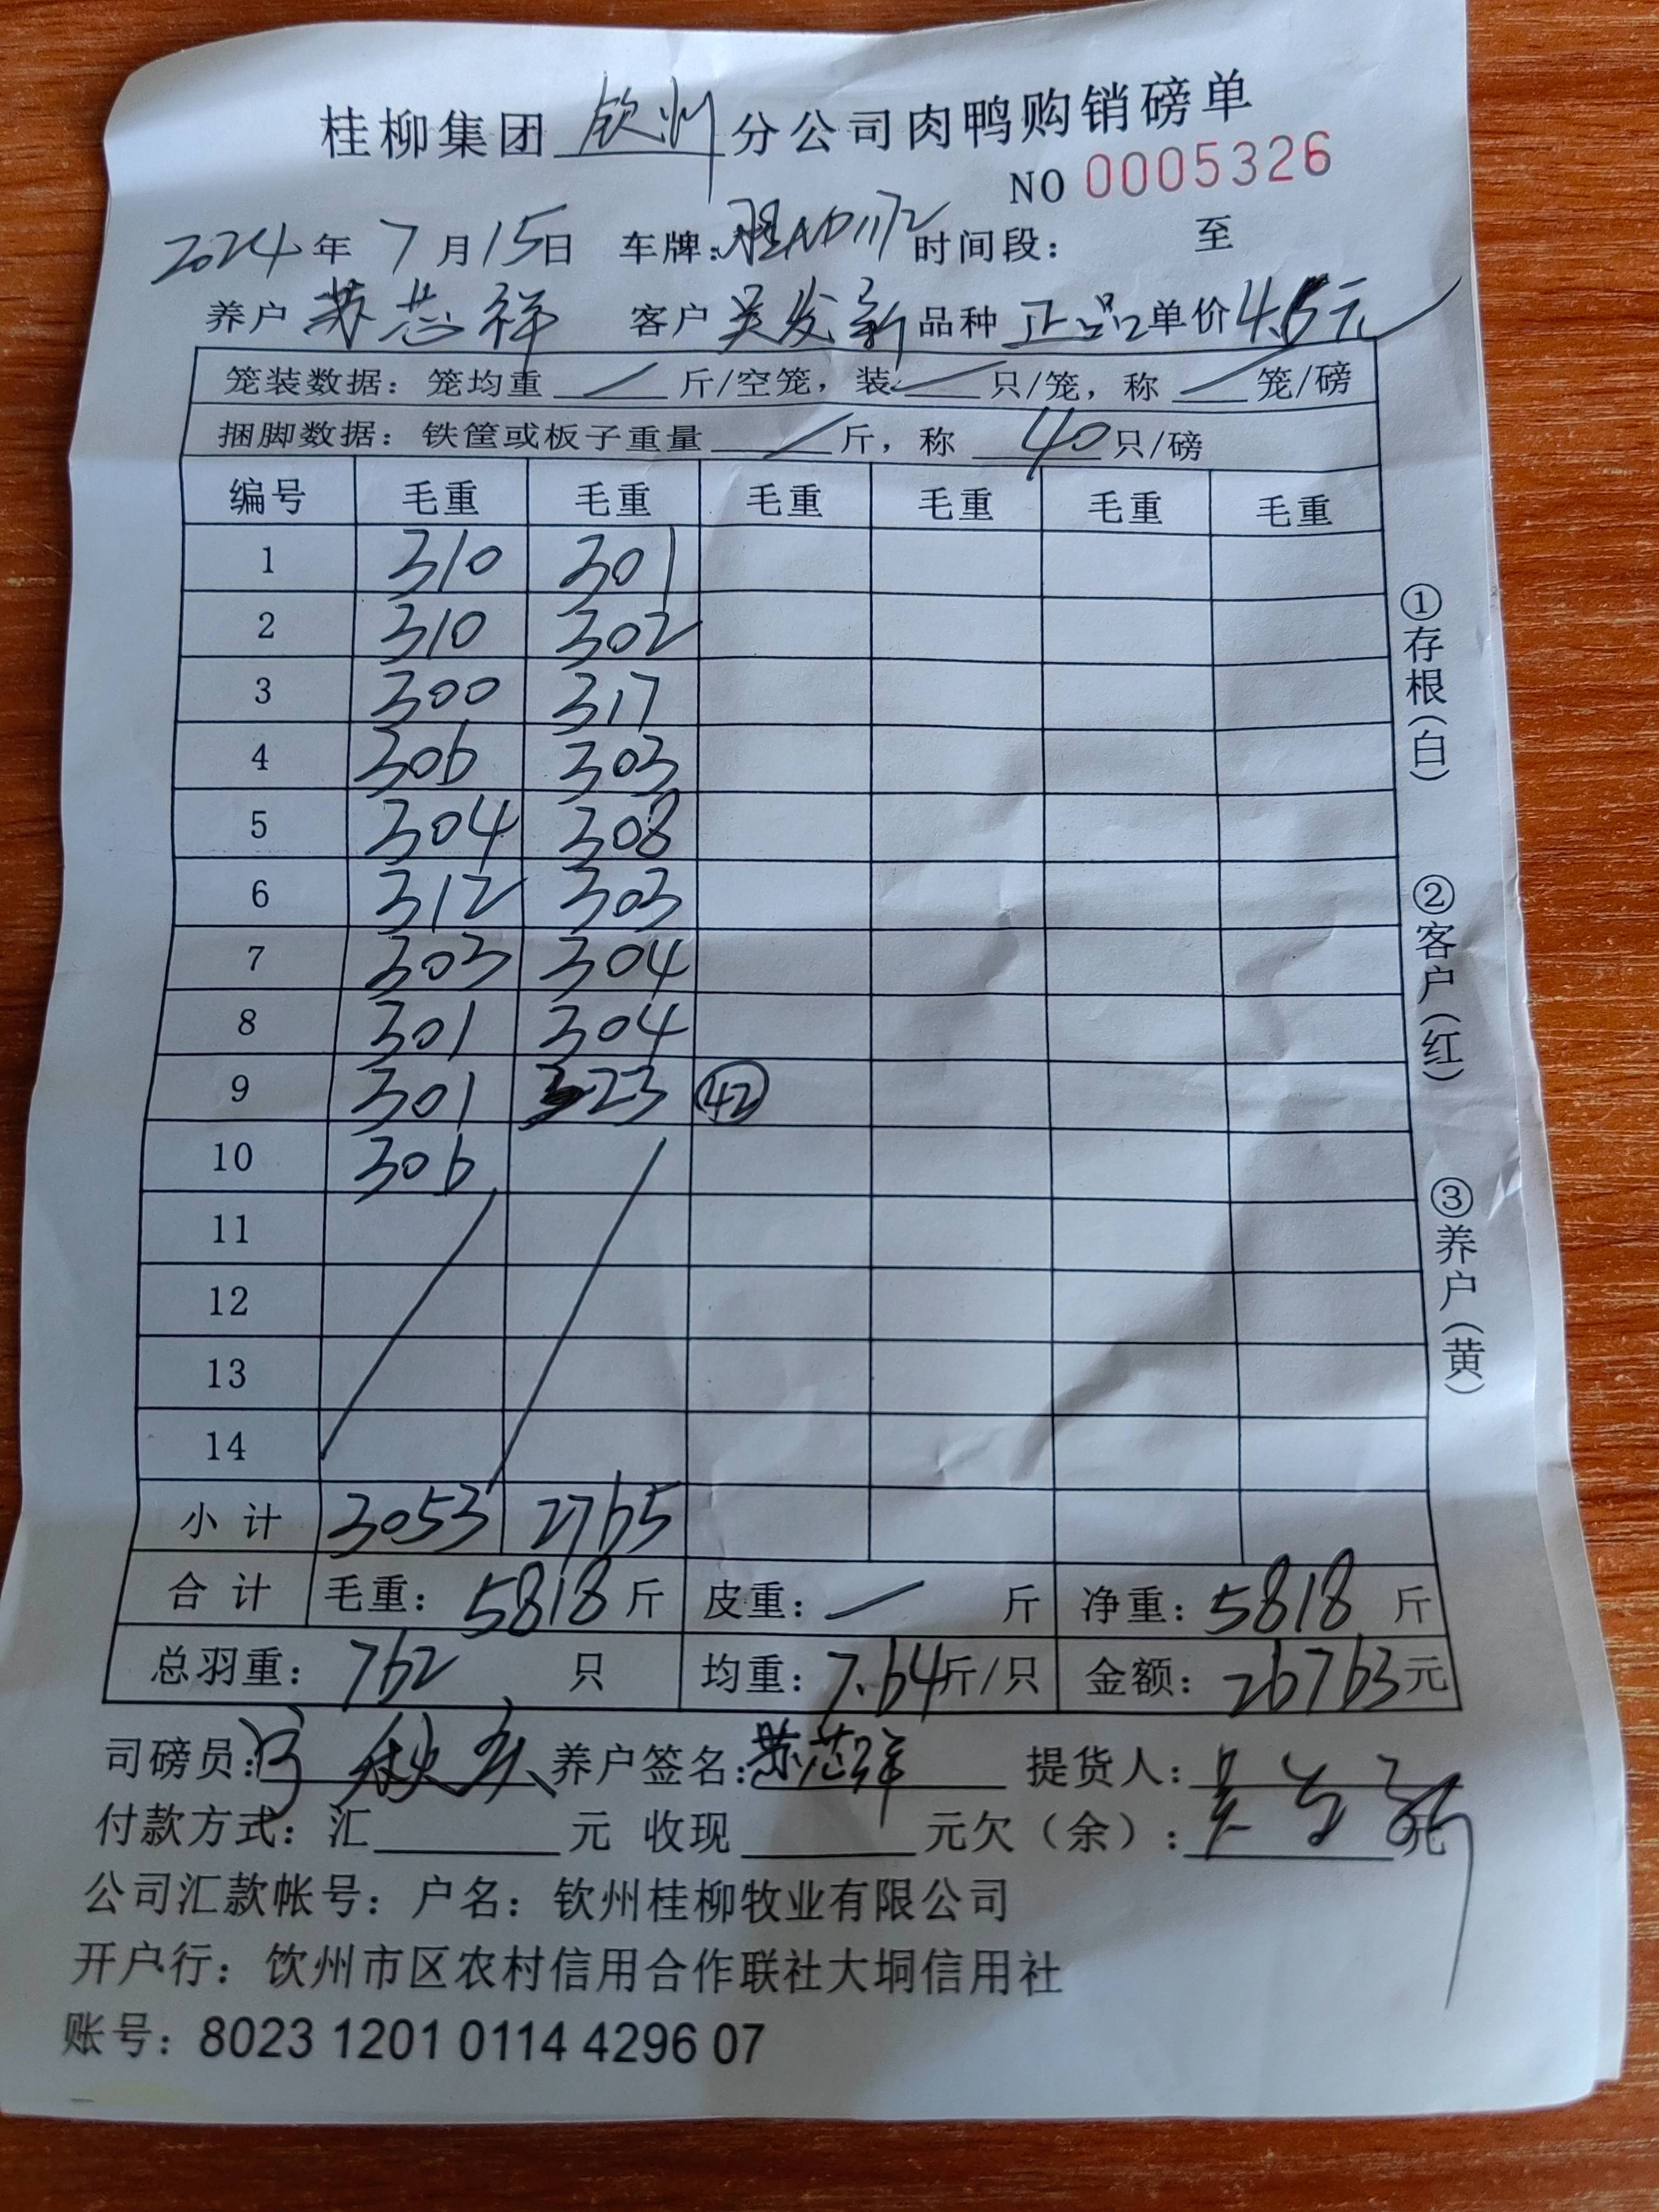 桂柳集团 钦州 分公司肉鸭购销磅单
NO 0005326
2024年 7月15日 车牌: 时间段: 至
养户 苏芯祥 客户 吴发新 品种 正品 单价 4.6元
笼装数据:笼均重 / 斤/空笼,装 / 只/笼,称 / 笼/磅
捆脚数据:铁筐或板子重量 / 斤,称 40 只/磅
编号 毛重 毛重 毛重 毛重 毛重 毛重
1 310 301
2 310 302
3 300 317
4 306 303
5 304 308
6 312 303
7 303 304
8 301 304
9 301 323 42
10 306
11
12
13
14
小计 3053 2765
合计 毛重:5818斤 皮重:/ 斤 净重:5818斤
总羽重:762 只 均重:7.64斤/只 金额:26763元
司磅员: 养户签名:苏芯祥 提货人:吴发新
付款方式:汇 元 收现 元欠(余): 元
公司汇款帐号:户名:钦州桂柳牧业有限公司
开户行:饮州市区农村信用合作联社大垌信用社
账号:8023 1201 0114 4296 07
①存根(白)
②客户(红)
③养户(黄)